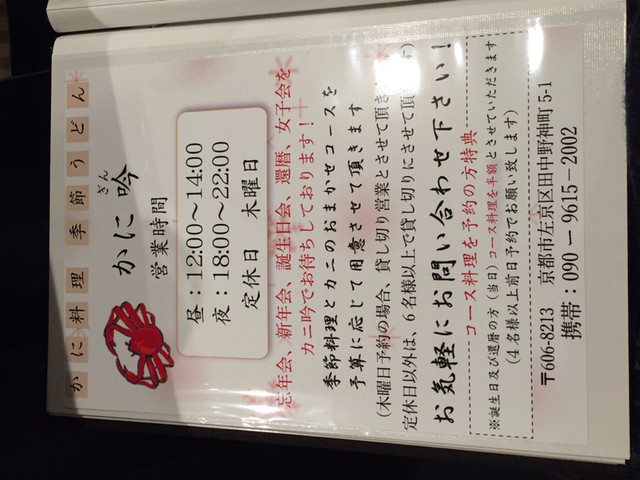 かに料理 季節うどん
かに吟
ぎん
営業時間
昼：12:00～14:00
夜：18:00～22:00
定休日 木曜日
忘年会、新年会、誕生日会、還暦、女子会を
カニ吟でお待ちしております！
季節料理とカニのおまかせコースを
予算に応じて用意させて頂きます
(木曜日予約の場合、貸し切り営業とさせて頂き
定休日以外は、6名様以上で貸し切りにさせて頂
お気軽にお問い合わせ下さい！
コース料理を予約の方特典
※誕生日及び還暦の方(当日)コース料理を半額とさせていただきます
(4名様以上前日予約でお願い致します)
〒606-8213 京都市左京区田中野神町5-1
携帯：090－9615－2002